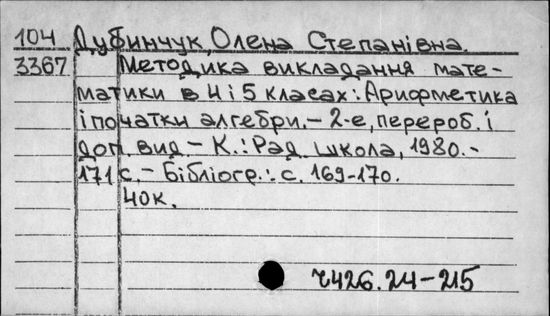 104 Дубинчук, Олена Степанівна.
3367 Методика викладання мате-
матики в 4 і 5 класах: Арифметика
і початки алгебри. - 2-е, перероб. і
доп. вид - К.: Рад. школа, 1980. -
171 с. - Бібліогр.: с. 169-170.
40к.
Ч426.24-215